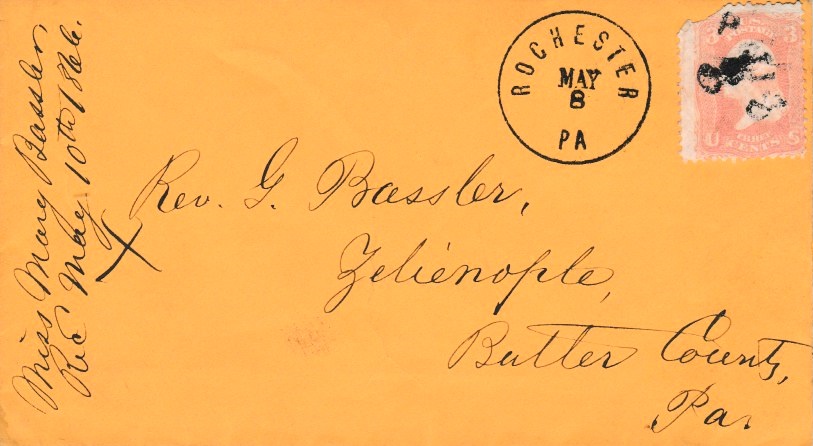 Miss Mary Bassler,
Rec May 10th 1866.
ROCHESTER
MAY
8
PA
U.S.
POSTAGE
3 3
U S
THREE
CENTS
Rev. G. Bassler,
Zelienople,
Butler County,
Pa.